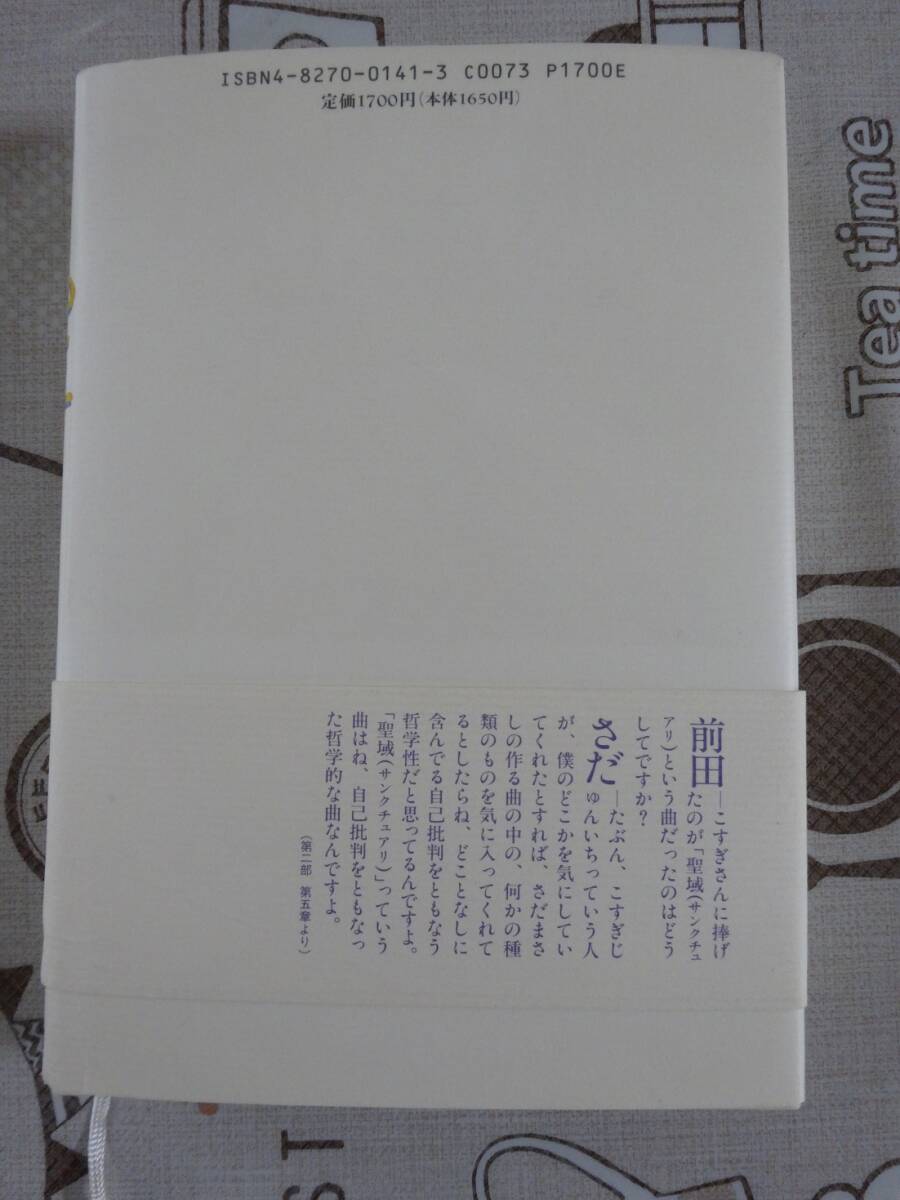 ISBN4-8270-0141-3 C0073 P1700E
定価1700円(本体1650円)
前田―こすぎさんに捧げ
たのが「聖域(サンクチュ
アリ)という曲だったのはどう
してですか?
さだ―たぶん、こすぎじ
ゅんいちっていう人
が、僕のどこかを気にしてい
てくれたとすれば、さだまさ
しの作る曲の中の、何かの種
類のものを気に入ってくれて
るとしたらね、どことなしに
含んでる自己批判をともなう
哲学性だと思ってるんですよ。
「聖域(サンクチュアリ)」っていう
曲はね、自己批判をともなっ
た哲学的な曲なんですよ。
(第二部 第五章より)
Tea time
ST